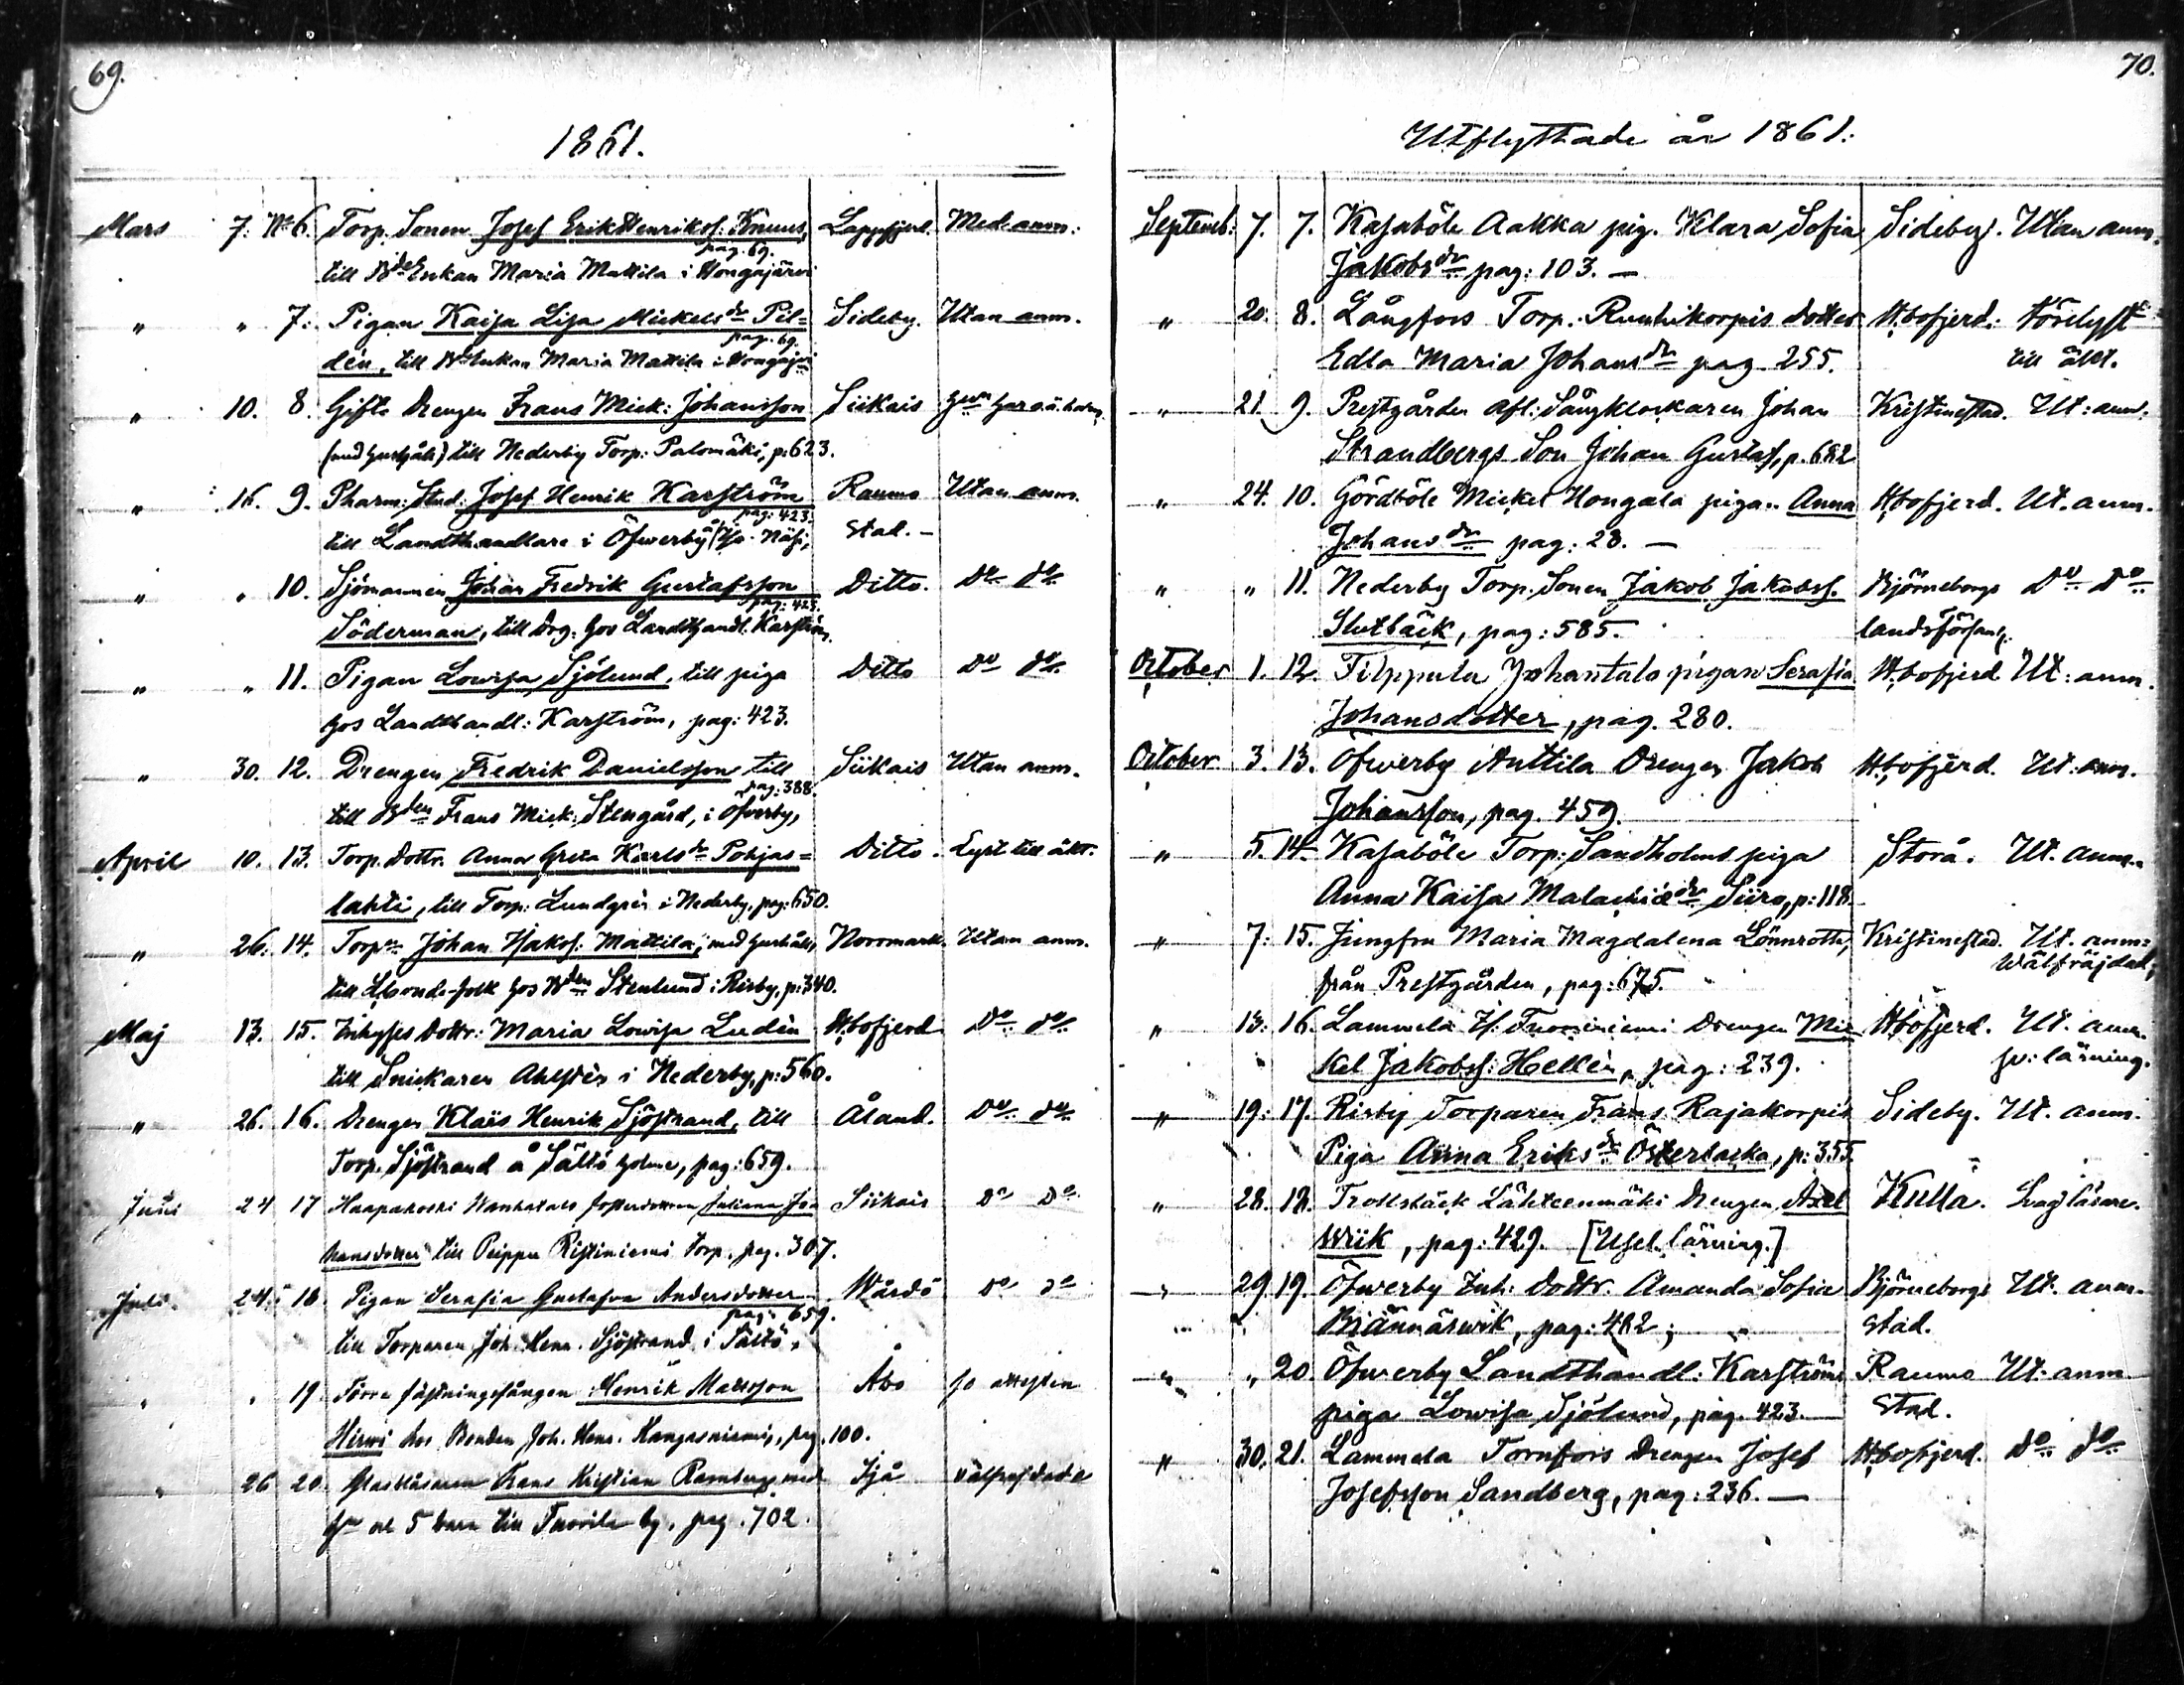 69.
1861.
Mars 7. No 6. Torp. Sonen Josef Erik Henrikss. Knuus, Lappfjerd. Med anm.
pag. 69.
till Bde Enkan Maria Mattila i Hongajärvi
" " 7. Pigan Kaisa Lisa Mickelsdr Pel= Sideby. Utan anm.
pag. 69.
dén, till Bde Enkan Maria Mattila i
" 10. 8. Gifte Drengen Frans Mick: Johansson Siikais
(med hushåll) till Nederby Torp. Palomäki, p. 623.
" 16. 9. Pharm: Stud. Josef Henrik Karström Raumo Utan anm.
pag: 423.
till Landthandlare i Öfwerby Stad. –
" " 10. Sjömannen Johan Fredrik Gustafsson Ditto. Do do
pag: 423.
Söderman, till Drg. hos Landthandl. Karström,
" " 11. Pigan Lowisa Sjölund, till piga Ditto Do do
hos Landthandl: Karström, pag: 423.
" 30. 12. Drengen Fredrik Danielsson till Siikais Utan anm.
pag: 388.
till Bden Frans Mick: Stengård, i Öfverby,
April 10. 13. Torp. dottr. Anna Greta Karlsdr Pohjas= Ditto. Lyst till äkt.
lahti, till Torp: Lundgrén i Nederby, pag: 650.
" 26. 14. Torpn Johan Mattila, med hushåll, Norrmark. Utan anm.
till folk hos Bden Stenlund i Risby, p: 340.
Maj 13. 15. Inhyses Dottr: Maria Lowisa Ludén Hbofjerd Do do
till Snickaren Ahlstén i Nederby, p: 560.
" 26. 16. Drengen Klas Henrik Sjöstrand, till Åland. Do do
Torp. Sjöstrand å Sältö holme, pag: 659.
Juni 24 17 Haapakoski Wanhatalo Juliana Jo= Siikais Do Do
hansdotter till Peippu Ristiniemi torp. pag. 307.
Juli 24. 18 Pigan Serafia Gustafva Andersdotter Wårdö Do Do
pag. 659.
till Torparen Joh. Henr. Sjöstrand i Sältö,
" " 19. Förre fästningsfången Henrik Mattsson Åbo se attesten
Hirwi hos Bonden Joh. Henr. Kangasniemi, pag. 100.
" 26 20. Glasblåsaren Frans Kristian Ramberg med Sjå
hu oc 5 barn till Tuorila by, pag. 702.
70.
Utflyttade år 1861.
Septemb: 7. 7. Kasaböle Aakka pig. Klara Sofia Sideby. Utan anm.
Jakobsdr pag: 103. –
" 20. 8. Långfors Torp. Ruuhikorpis dotter Hbofjerd. förelyst
Edla Maria Johansdr pag. 255. till äkt.
" 21 9. Prestgården afl: Sångklockaren Johan Kristinestad. Ut: anm.
Strandbergs Son Johan Gustaf, p. 682
" 24. 10. Gördböle Mickel Hongala piga. Anna Hbofjerd. Ut. anm.
Johansdr pag: 28. –
" " 11. Nederby Torp. Sonen Jakob Jakobss. Björneborgs Do Do
Slutbäck, pag: 585. landsförsaml.
October 1. 12. Filppula Juhantalo pigan Serafia Hbofjerd Ut: anm.
Johansdotter, pag. 280.
October 3. 13. Öfwerby Anttila Drengen Jakob Hbofjerd. Ut: anm.
Johansson, pag. 459.
" 5. 14. Kasaböle Torp: Sandholms piga Storå. Ut. anm.
Anna Kaisa Malachiædr Siiro, p: 118.
" 7. 15. Jungfru Maria Magdalena Lönnroth, Kristinestad. Ut. anm:
Wälfräjdad;
från Prestgården, pag: 675.
" 13. 16. Lammela Tuoriniemi Drengen Mic= Hbofjerd. Ut. anm.
kel Jakobss: Hellén, pag: 239. sv: läsning.
" 19. 17. Risby Torparen Frans Rajakorpis Sideby. Ut. anm.
Piga Anna Eriksdr Österbacka, p: 355.
" 28. 18. Trollsbäck Lähteenmäki Drengen Axel Kulla. Svag läsare.
Wiik, pag: 429. [Usel läsning.]
" 29. 19. Öfwerby Inh: Dottr. Amanda Sofia Björneborgs Ut. anm.
Brännäswik, pag: 482; Stad.
" " 20. Öfwerby Landthandl: Karströms Raumo Ut. anm
piga Lowisa Sjölund, pag. 423. – Stad.
" 30. 21. Lammela Tornfors Drengen Josef Hbofjerd. Do do
Josefsson Sandberg, pag: 236. –